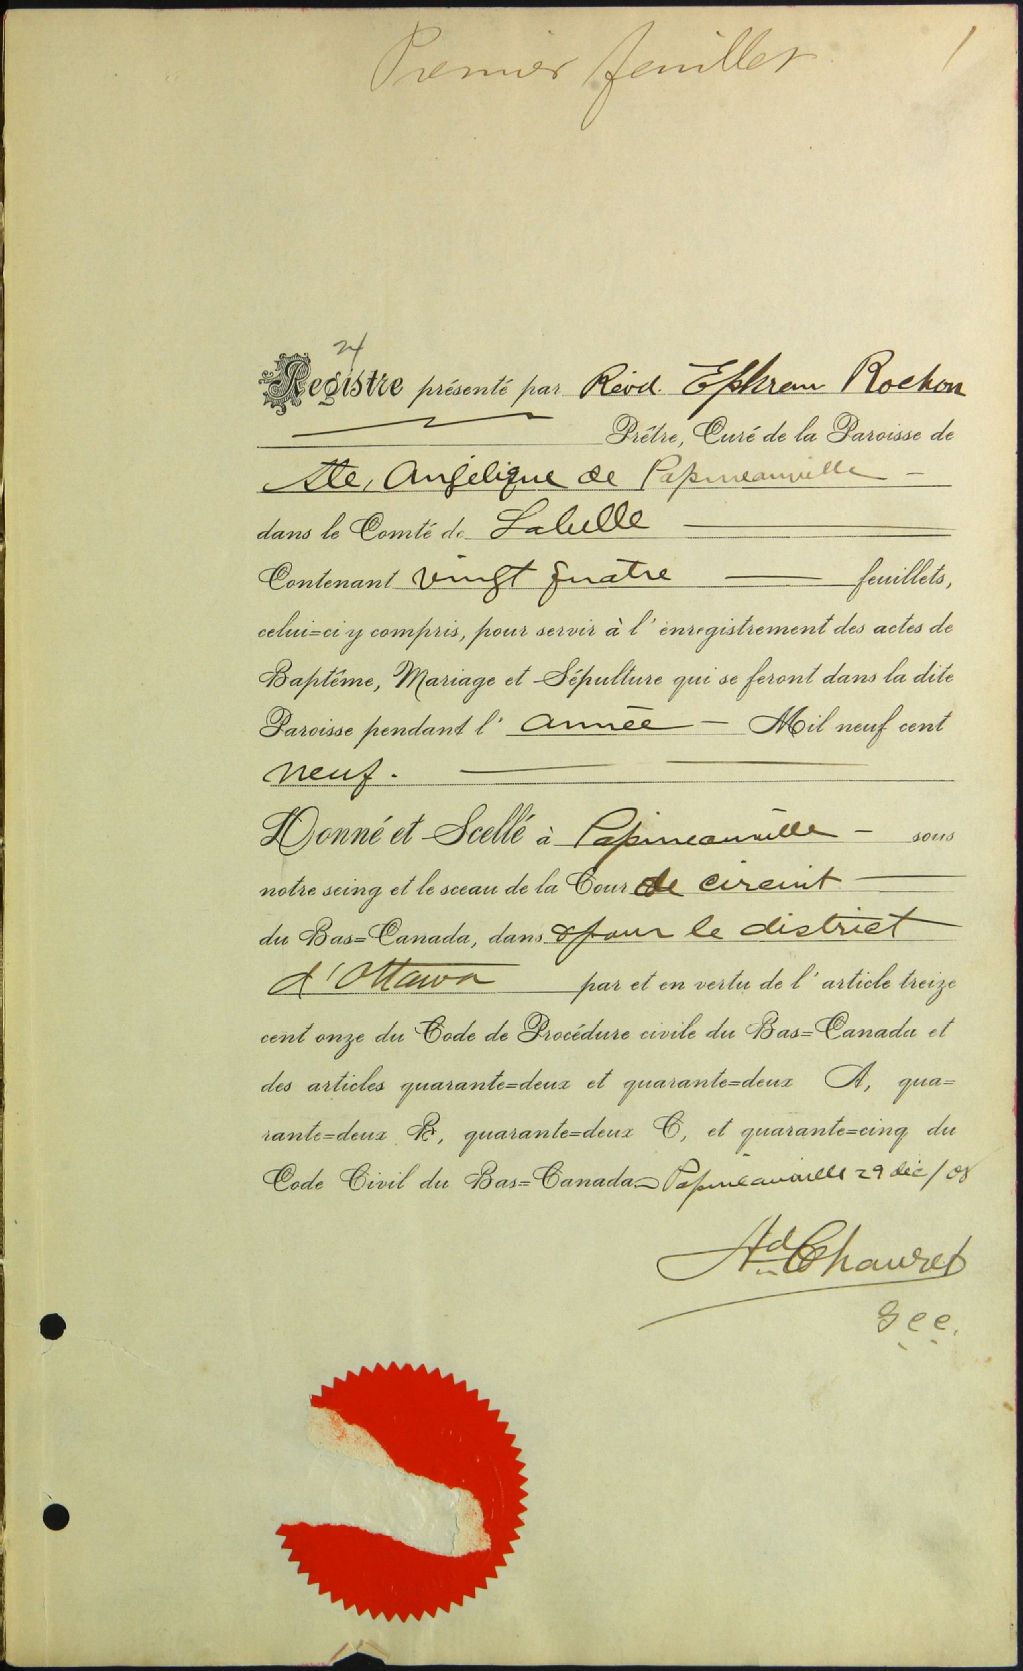 Premier feuillet 1
24
Registre présenté par Révd. Ephrem Rochon
Prêtre, Curé de la Paroisse de
Ste, Angélique de Papineauville
dans le Comté de Labelle
Contenant vingt quatre feuillets,
celui=ci y compris, pour servir à l'enregistrement des actes de
Baptême, Mariage et Sépulture qui se feront dans la dite
Paroisse pendant l'année Mil neuf cent
neuf.
Donné et Scellé à Papineauville sous
notre seing et le sceau de la Cour de circuit
du Bas=Canada, dans & pour le district
d'Ottawa par et en vertu de l'article treize
cent onze du Code de Procédure civile du Bas=Canada et
des articles quarante=deux et quarante=deux A, qua=
rante=deux B, quarante=deux C, et quarante=cinq du
Code Civil du Bas=Canada Papineauville 29 déc/08
Ad Chauret
g c c.